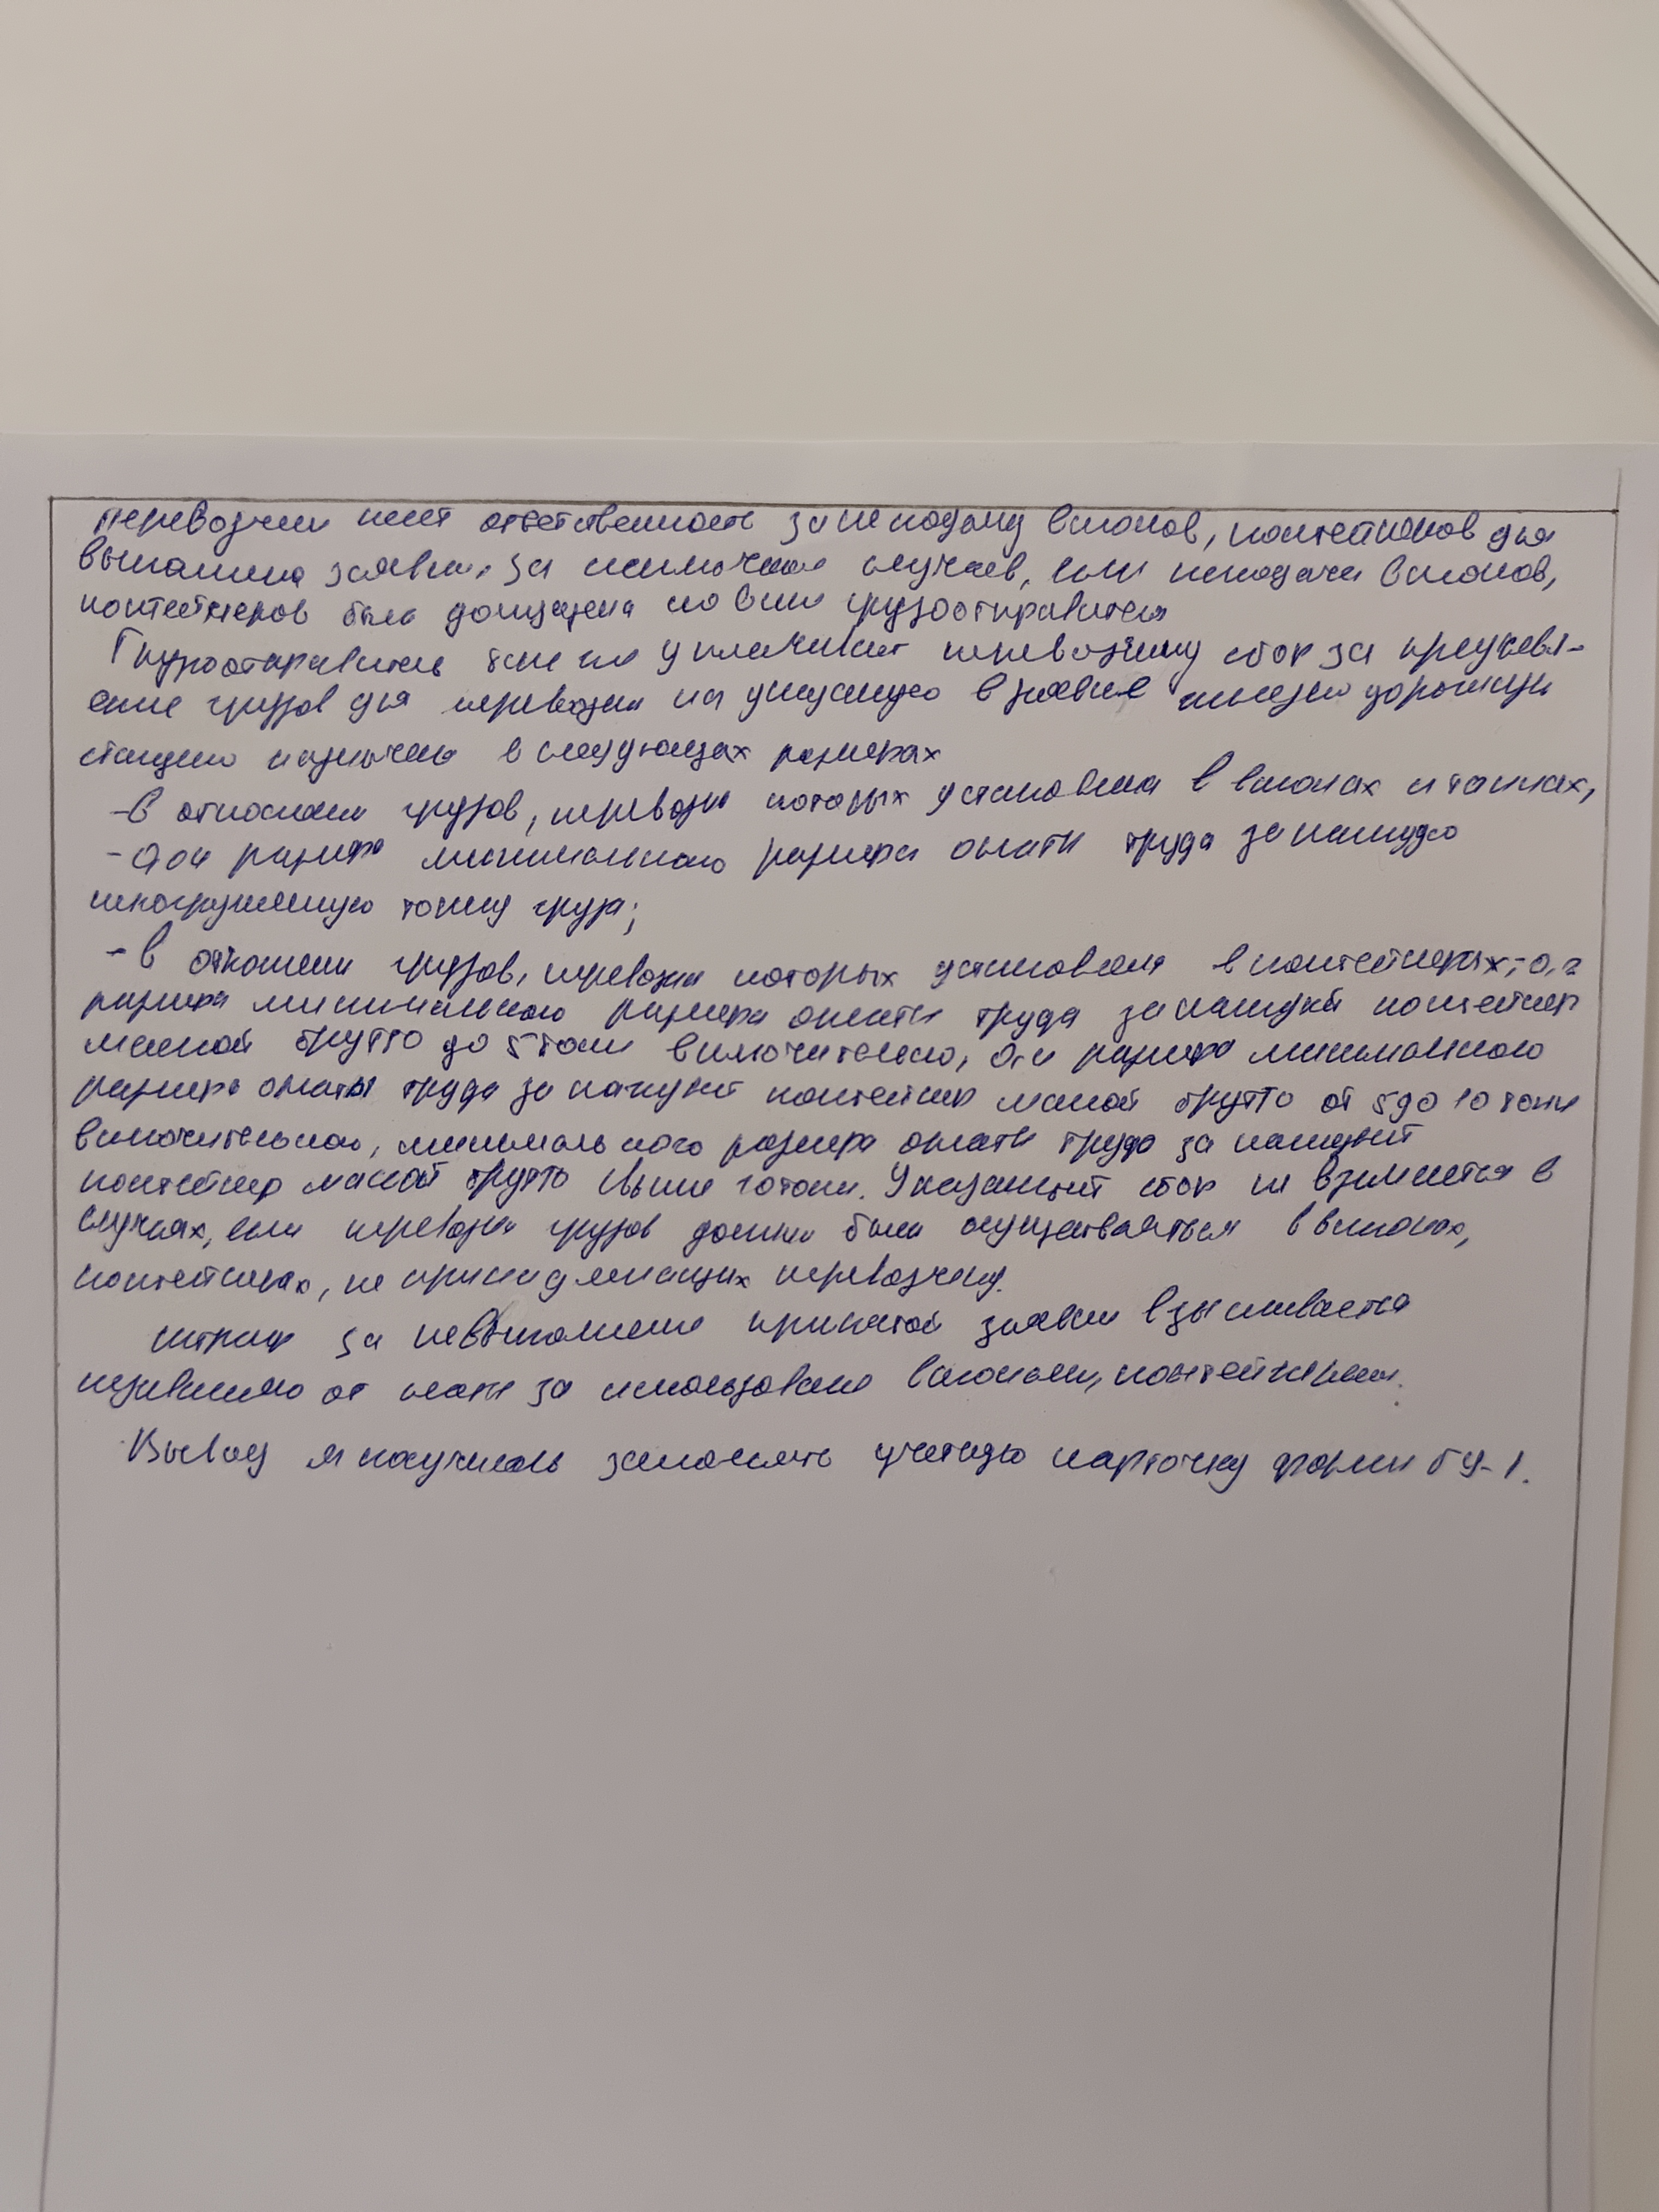 перевозчик несет ответственность за неподачу вагонов, контейнов для
выполнена заявки, за исключением случаев, если неподача вагонов,
контейнеров была допущена по вине грузоотправителя
Грузоотправитель также уплачивает перевозчику сбор за предъявл-
ение грузов для перевозки на указанную в заявке железнодорожную
станцию назначения в следующих размерах
-В отношении грузов, перевозка которых установлена в вагонах и тоннах,
-0,04 размера минимального размера оплаты труда за каждую
непогруженную тонну груза;
-В отношении грузов, перевозки которых установлена в контейнерах,-0,2
размера минимального размера оплаты труда за каждый контейнер
массой брутто до 5 тонн включительно, размера минимального
размера оплаты труда за каждый контейнер массой брутто от 5 до 10 тонн
включительно, минимального размера оплаты труда за каждый
контейнер массой брутто свыше 10 тонн. Указанный сбор не взимается в
случаях, если перевозки грузов должны были осуществляться в вагонах,
контейнерах, не принадлежащих перевозчику.
штраф за невыполнение принятой заявки взыскивается
независимо от платы за использование вагонами, контейнерами.
Вывод я научилась заполнять учетную карточку формы ГУ-1.